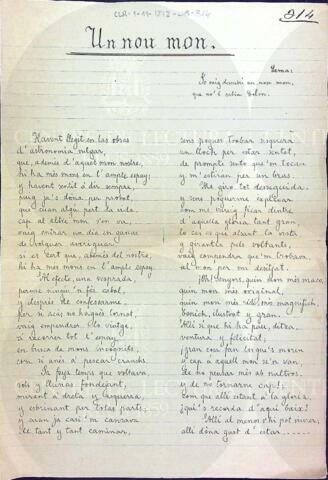 CLR-1-11-1212-LR-314
214
Un nou mon.
Lema:
Jo vaig descubrí un nou mon,
que no'l sabía Colon.
Havent llegit en las obras
d'astronomía vulgar,
que, además d'aquest mon nostre,
hi ha més mons en l'ample espay;
y havent sentit a dir sempre,
puig ja's dona per probat,
que cuan algú pert la vida
cap al altre mon s'en va;
vaig mirar un día en ganas
de volguer averiguar
si es cert que, además del nostre,
hi ha més mons en l'ample espay.
Al efecte, una vesprada,
perque ningú 'n fes cabal,
y després de confessarme,
per si acás no hagués tornat,
vaig empendrer el viatge,
y recorrer tot l'espay,
en busca de mons
com si anés á pescar cranchs.
Ja feya temps que voltava
sols y llunas fondejant,
mirant á dreta y esquerra
y escorcant per totas parts;
y cuan ja casi 'm cansava
de tant y tant caminar,
sens poguer trobar siquiera
un lloch per estar sentat,
de prompte sento que 'm tocan
y m'estiran per un bras.
Me giro tot desseguida,
y sens poguerme explicar
com me vaig ficar dintre
d'aquella gloria tan gran,
lo cert es qu'alsant la vista
y girantla pels voltants,
vaig compendre que 'm trobava
al mon per mi desitjat.
¡Oh! Senyors, quin mon més maco,
quin mon més original,
quin mon més magnífich,
bonich, ilustrat y gran.
Allí si que hi ha pau, ditxa,
ventura y felicitat;
¡gran cosa fan los qu's moren
y cap á aquell mon si'n van,
de no pensar més ab naltros
y de no tornarne cap!
Com que allí están á la gloria,
¿qui's recorda d'aquí baix?
Allí al menos s'hi pot viurer,
allí dona gust d'estar.....